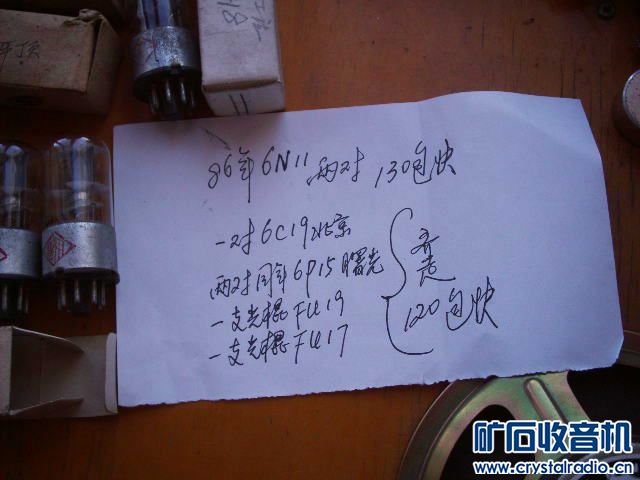 平顶
86年6N11 两对 130包快
一对6C19北京
两对同年6P15曙光
一支光棍FU19
一支光棍FU17
齐走
120包快
矿石收音机
www.crystalradio.cn